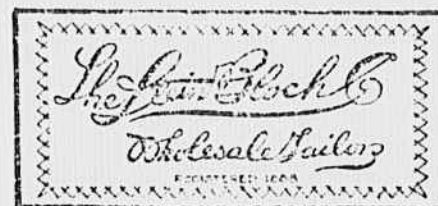 The Stein Bloch Co
Wholesale Tailors
REGISTERED 1898